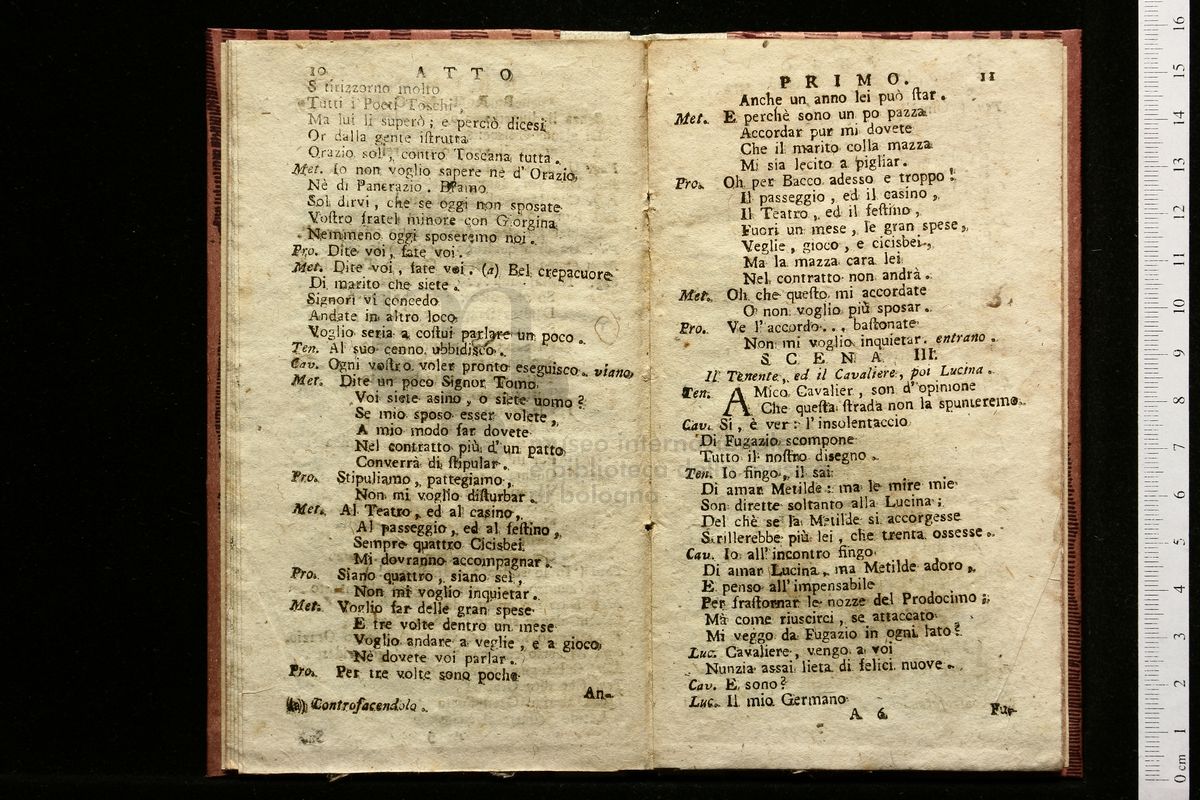 10 ATTO
S tirizzorno molto
Tutti i Poeti Toschi,
Ma lui li superò; e perciò dicesi
Or dalla gente iſtrutta
Orazio sol, contro Toscana tutta.
Met. Io non voglio sapere nè d'Orazio,
Nè di Pancrazio. Bramo
Sol dirvi, che se oggi non sposate
Voſtro fratel minore con Giorgina
Nemmeno oggi sposeremo noi.
Pro. Dite voi, fate voi.
Met. Dite voi, fate voi. (a) Bel crepacuore
Di marito che siete.
Signori vi concedo
Andate in altro loco
Voglio seria a coſtui parlare un poco.
Ten. Al suo cenno ubbidisco.
Cav. Ogni voſtro voler pronto eseguisco. viano
Met. Dite un poco Signor Tomo
Voi siete asino, o siete uomo?
Se mio sposo esser volete,
A mio modo far dovete
Nel contratto più d'un patto
Converrà di ſtipular.
Pro. Stipuliamo, pattegiamo,
Non mi voglio diſturbar.
Met. Al Teatro, ed al casino,
Al passeggio, ed al feſtino,
Sempre quattro Cicisbei
Mi dovranno accompagnar.
Pro. Siano quattro, siano sei,
Non mi voglio inquietar.
Met. Voglio far delle gran spese
E tre volte dentro un mese
Voglio andare a veglie, e a gioco
Nè dovete voi parlar.
Pro. Per tre volte sono poche
An-
(a) Controfacendolo.
PRIMO. 11
Anche un anno lei può ſtar.
Met. E perchè sono un po pazza
Accordar pur mi dovete
Che il marito colla mazza
Mi sia lecito a pigliar.
Pro. Oh per Bacco adesso e troppo!
Il passeggio, ed il casino,
Il Teatro, ed il feſtino,
Fuori un mese, le gran spese,
Veglie, gioco, e cicisbei,
Ma la mazza cara lei
Nel contratto non andrà.
Met. Oh che queſto mi accordate
O non voglio più sposar.
Pro. Ve l'accordo... baſtonate
Non mi voglio inquietar. entrano.
SCENA III.
Il Tenente, ed il Cavaliere, poi Lucina.
Ten. AMico Cavalier, son d'opinione
Che queſta ſtrada non la spunteremo.
Cav. Si, è ver: l'insolentaccio
Di Fugazio scompone
Tutto il noſtro disegno.
Ten. Io fingo, il sai
Di amar Metilde: ma le mire mie
Son dirette soltanto alla Lucina;
Del chè se la Metilde si accorgesse
Strillerebbe più lei, che trenta ossesse.
Cav. Io all'incontro fingo
Di amar Lucina, ma Metilde adoro,
E penso all'impensabile
Per fraſtornar le nozze del Prodocimo;
Ma come riuscirci, se attaccato
Mi veggo da Fugazio in ogni lato?
Luc. Cavaliere, vengo a voi
Nunzia assai lieta di felici nuove.
Cav. E sono?
Luc. Il mio Germano
A 6 Fur-
museo internazionale
e biblioteca della
di bologna